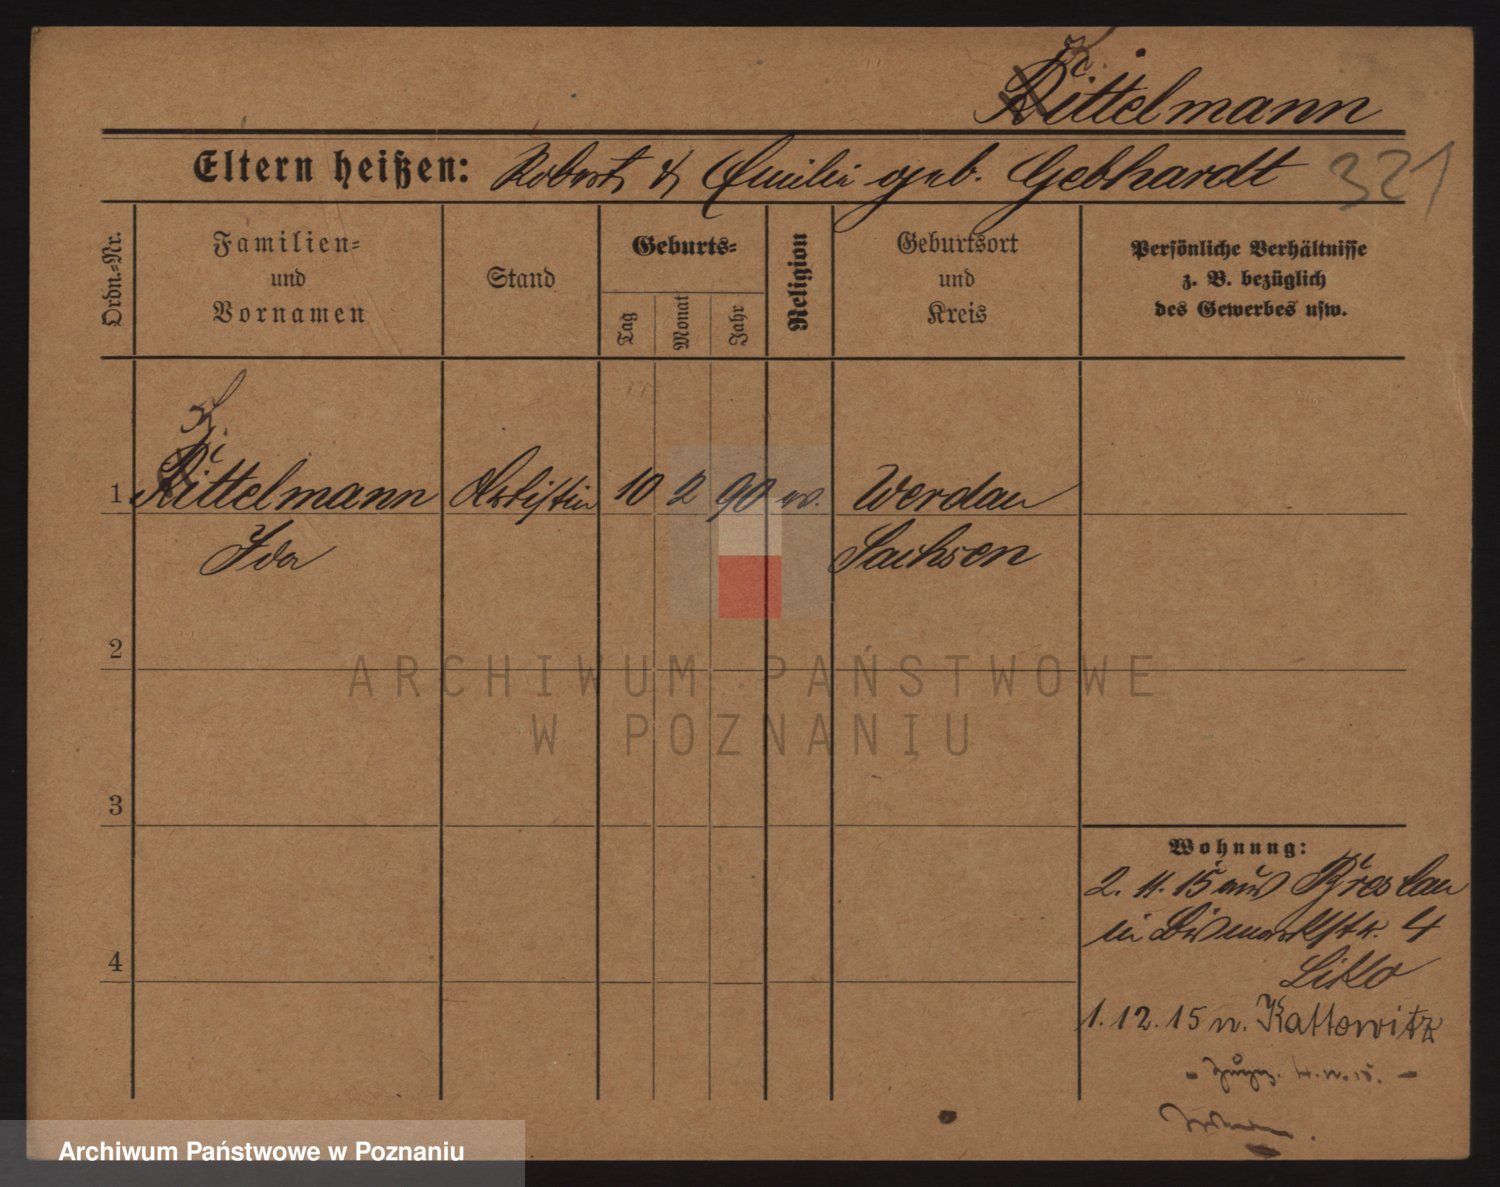 Kittelmann
Eltern heißen: Robert & Emilie geb. Gebhardt 321
Ordn.-Nr.
Familien-
und
Vornamen
Stand
Geburts-
Tag
Monat
Jahr
Religion
Geburtsort
und
Kreis
Persönliche Verhältnisse
z. B. bezüglich
des Gewerbes usw.
1 Kittelmann Artistin 10 2 90 ev. Werdau
Ida Sachsen
2
3
4
Wohnung:
2. 11. 15 aus Breslau
in Bismarckstr. 4
1. 12. 15 n. Kattowitz
ARCHIWUM PAŃSTWOWE
W POZNANIU
Archiwum Państwowe w Poznaniu